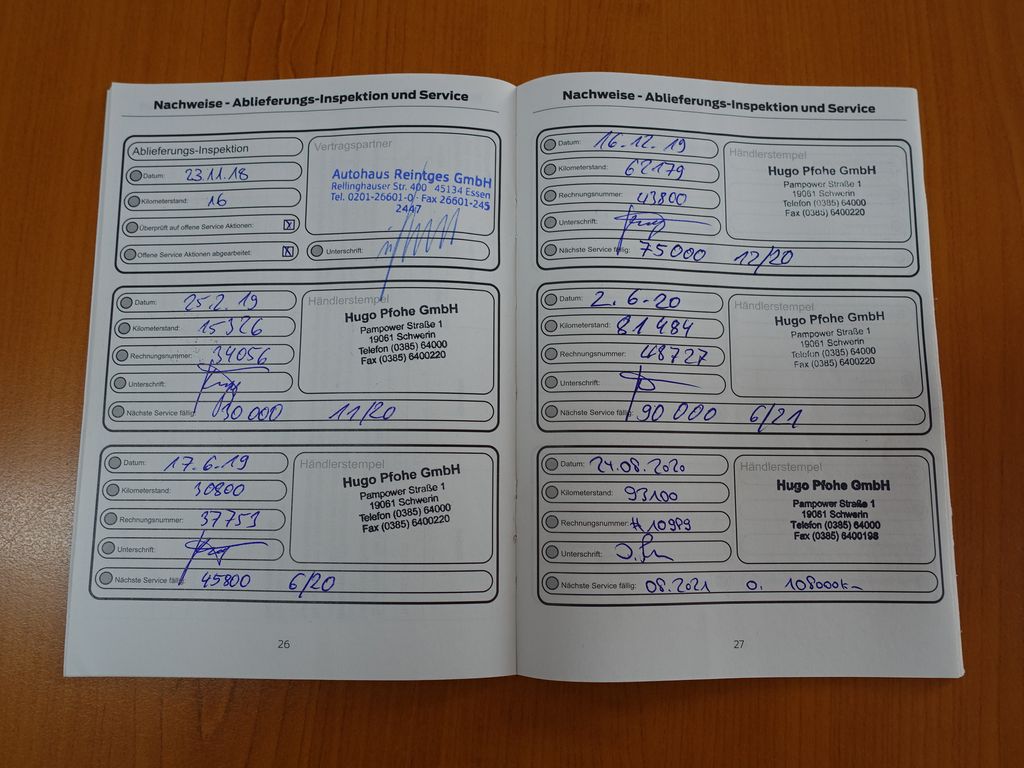 Nachweise - Ablieferungs-Inspektion und Service
Ablieferungs-Inspektion
Datum: 23.11.18
Kilometerstand: 16
Überprüft auf offene Service Aktionen: X
Offene Service Aktionen abgearbeitet: X
Vertragspartner
Autohaus Reintges GmbH
Rellinghauser Str. 400 · 45134 Essen
Tel. 0201-26601-0 · Fax 26601-245
2447
Unterschrift:
Datum: 25.2.19
Kilometerstand: 15326
Rechnungsnummer: 34056
Unterschrift:
Nächste Service fällig: 30000 11/20
Händlerstempel
Hugo Pfohe GmbH
Pampower Straße 1
19061 Schwerin
Telefon (0385) 64000
Fax (0385) 6400220
Datum: 17.6.19
Kilometerstand: 30800
Rechnungsnummer: 37753
Unterschrift:
Nächste Service fällig: 45800 6/20
Händlerstempel
Hugo Pfohe GmbH
Pampower Straße 1
19061 Schwerin
Telefon (0385) 64000
Fax (0385) 6400220
26
Nachweise - Ablieferungs-Inspektion und Service
Datum: 16.12.19
Kilometerstand: 62179
Rechnungsnummer: 43800
Unterschrift:
Nächste Service fällig: 75000 12/20
Händlerstempel
Hugo Pfohe GmbH
Pampower Straße 1
19061 Schwerin
Telefon (0385) 64000
Fax (0385) 6400220
Datum: 2.6.20
Kilometerstand: 81484
Rechnungsnummer: 48727
Unterschrift:
Nächste Service fällig: 90000 6/21
Händlerstempel
Hugo Pfohe GmbH
Pampower Straße 1
19061 Schwerin
Telefon (0385) 64000
Fax (0385) 6400220
Datum: 24.08.2020
Kilometerstand: 93100
Rechnungsnummer: #10989
Unterschrift:
Nächste Service fällig: 08.2021 o. 108000km
Händlerstempel
Hugo Pfohe GmbH
Pampower Straße 1
19061 Schwerin
Telefon (0385) 64000
Fax (0385) 6400198
27